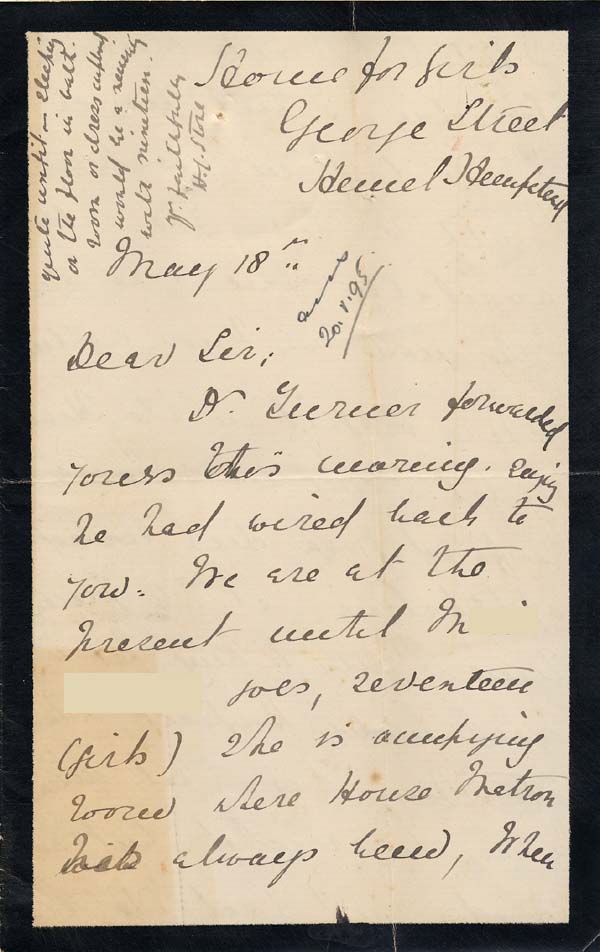 Home for Girls
George Street
Hemel Hempstead
May 18th
ansd
20.5.95
Dear Sir,
Dr. Turner forwarded
yours this morning. saying
he had wired back to
you. We are at the
present until M
goes, seventeen
(girls) She is occupying
room where House Matron
has always been, When
quite until - sleeping
on the floor in bed.
room or dress cutting
would be a
with nineteen.
Yr faithfully